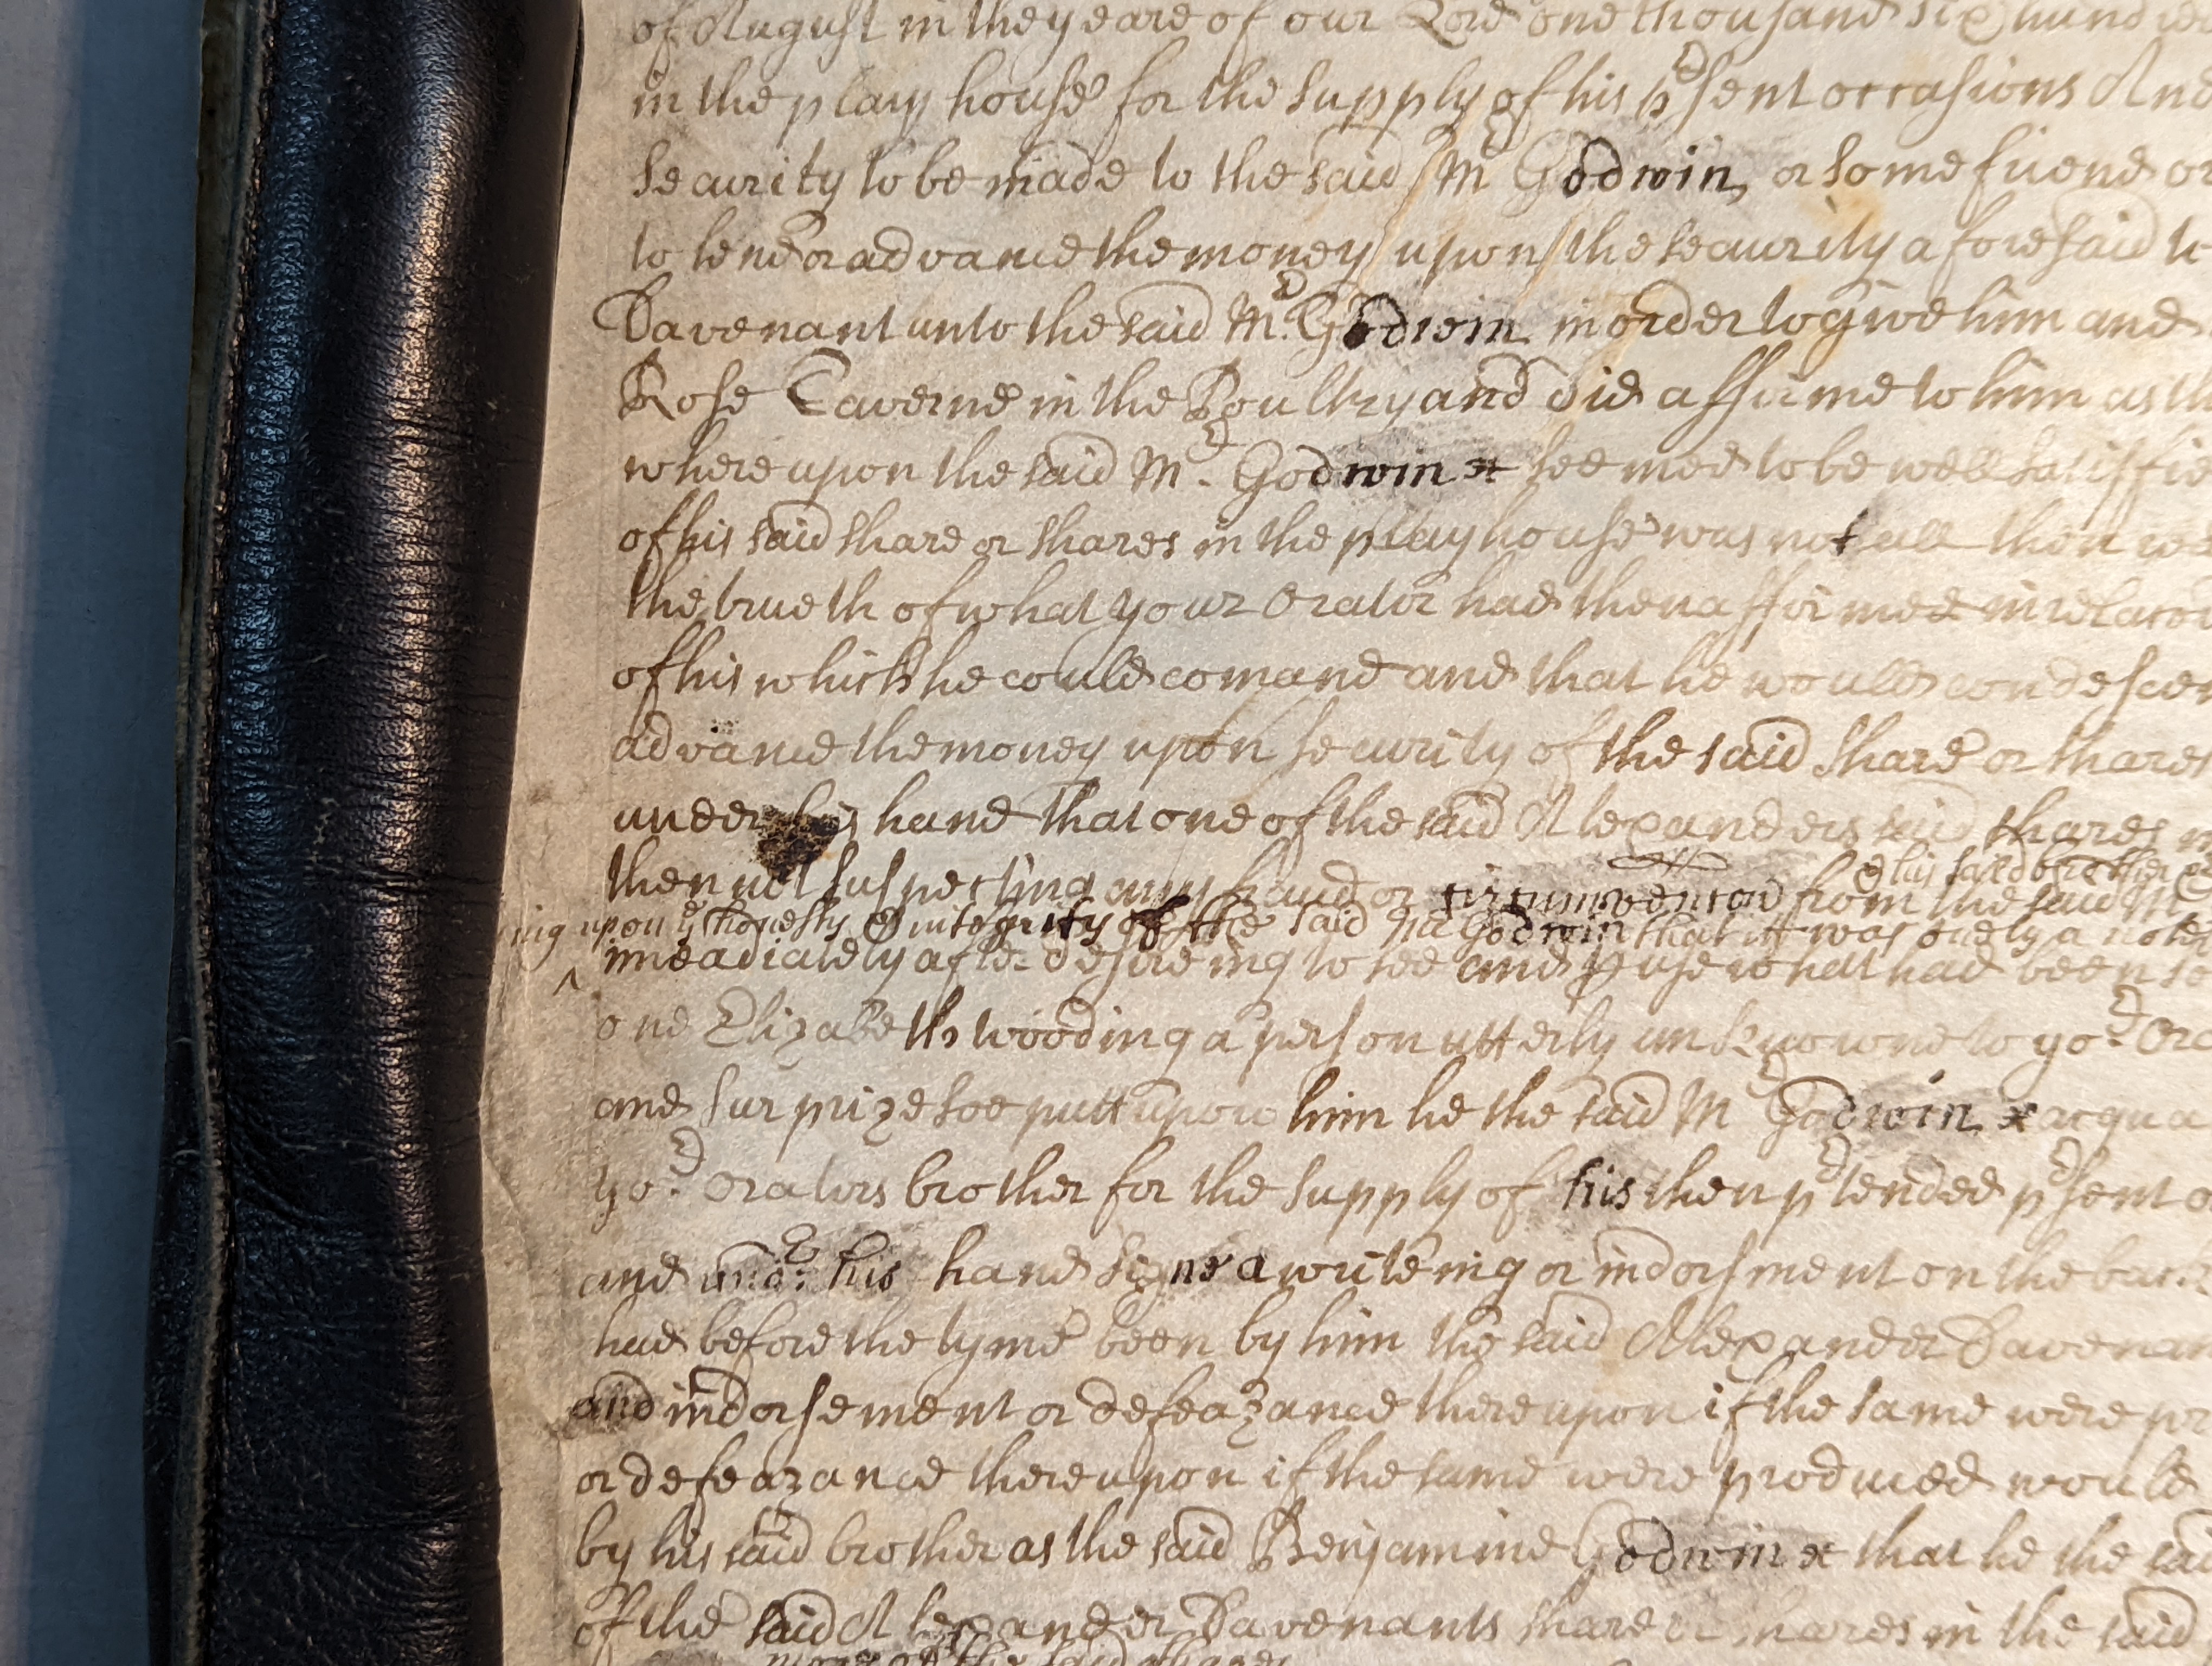 of August in the yeare of our Lord one thousand six hundre
in the play house for the supply of his p^rsent occasions And
Security to be made to the said M^r Godwin or some friend or
to lend or advance the money upon the security aforesaid to
Davenant unto the said M^r. Godwin in order to give him and
Rose Taverne in the Poultry and did affirme to him as th
whereupon the said M^r. Godwin seemed to be well satisffie
of his said share or shares in the playhouse was not all then
the trueth of what your Orator had then affirmed in relac̄on
of his which he could com̄and and that he would condescen
advance the money upon security of the said share or shares
under his hand that one of the said Alexanders said shares
& his said brother
then not suspecting any fraud or circumvenc̄on from the said M^r
ing upon y^e honesty & integrity of the said M^r Godwin that itt was onely a note
im̄eadiately after desireing to see and peruse what had been so
one Elizabeth Wooding a person utterly unknowne to yo^r. Ora
and surprize soe putt upon him he the said M^r Godwin acqua
yo^r. Orators brother for the supply of his then p^rtended p^rsent o
and und^r: his hand signe a writeing or indorsment on the back
had before the tyme been by him the said Alexander Davenan
and indorsement or defeazance thereupon if the same were pr
or defeazance thereupon if the same were produced would
by his said brother as the said Benjamine Godwin that he the said
of the said Alexander Davenants share or shares in the said
more of the said shares